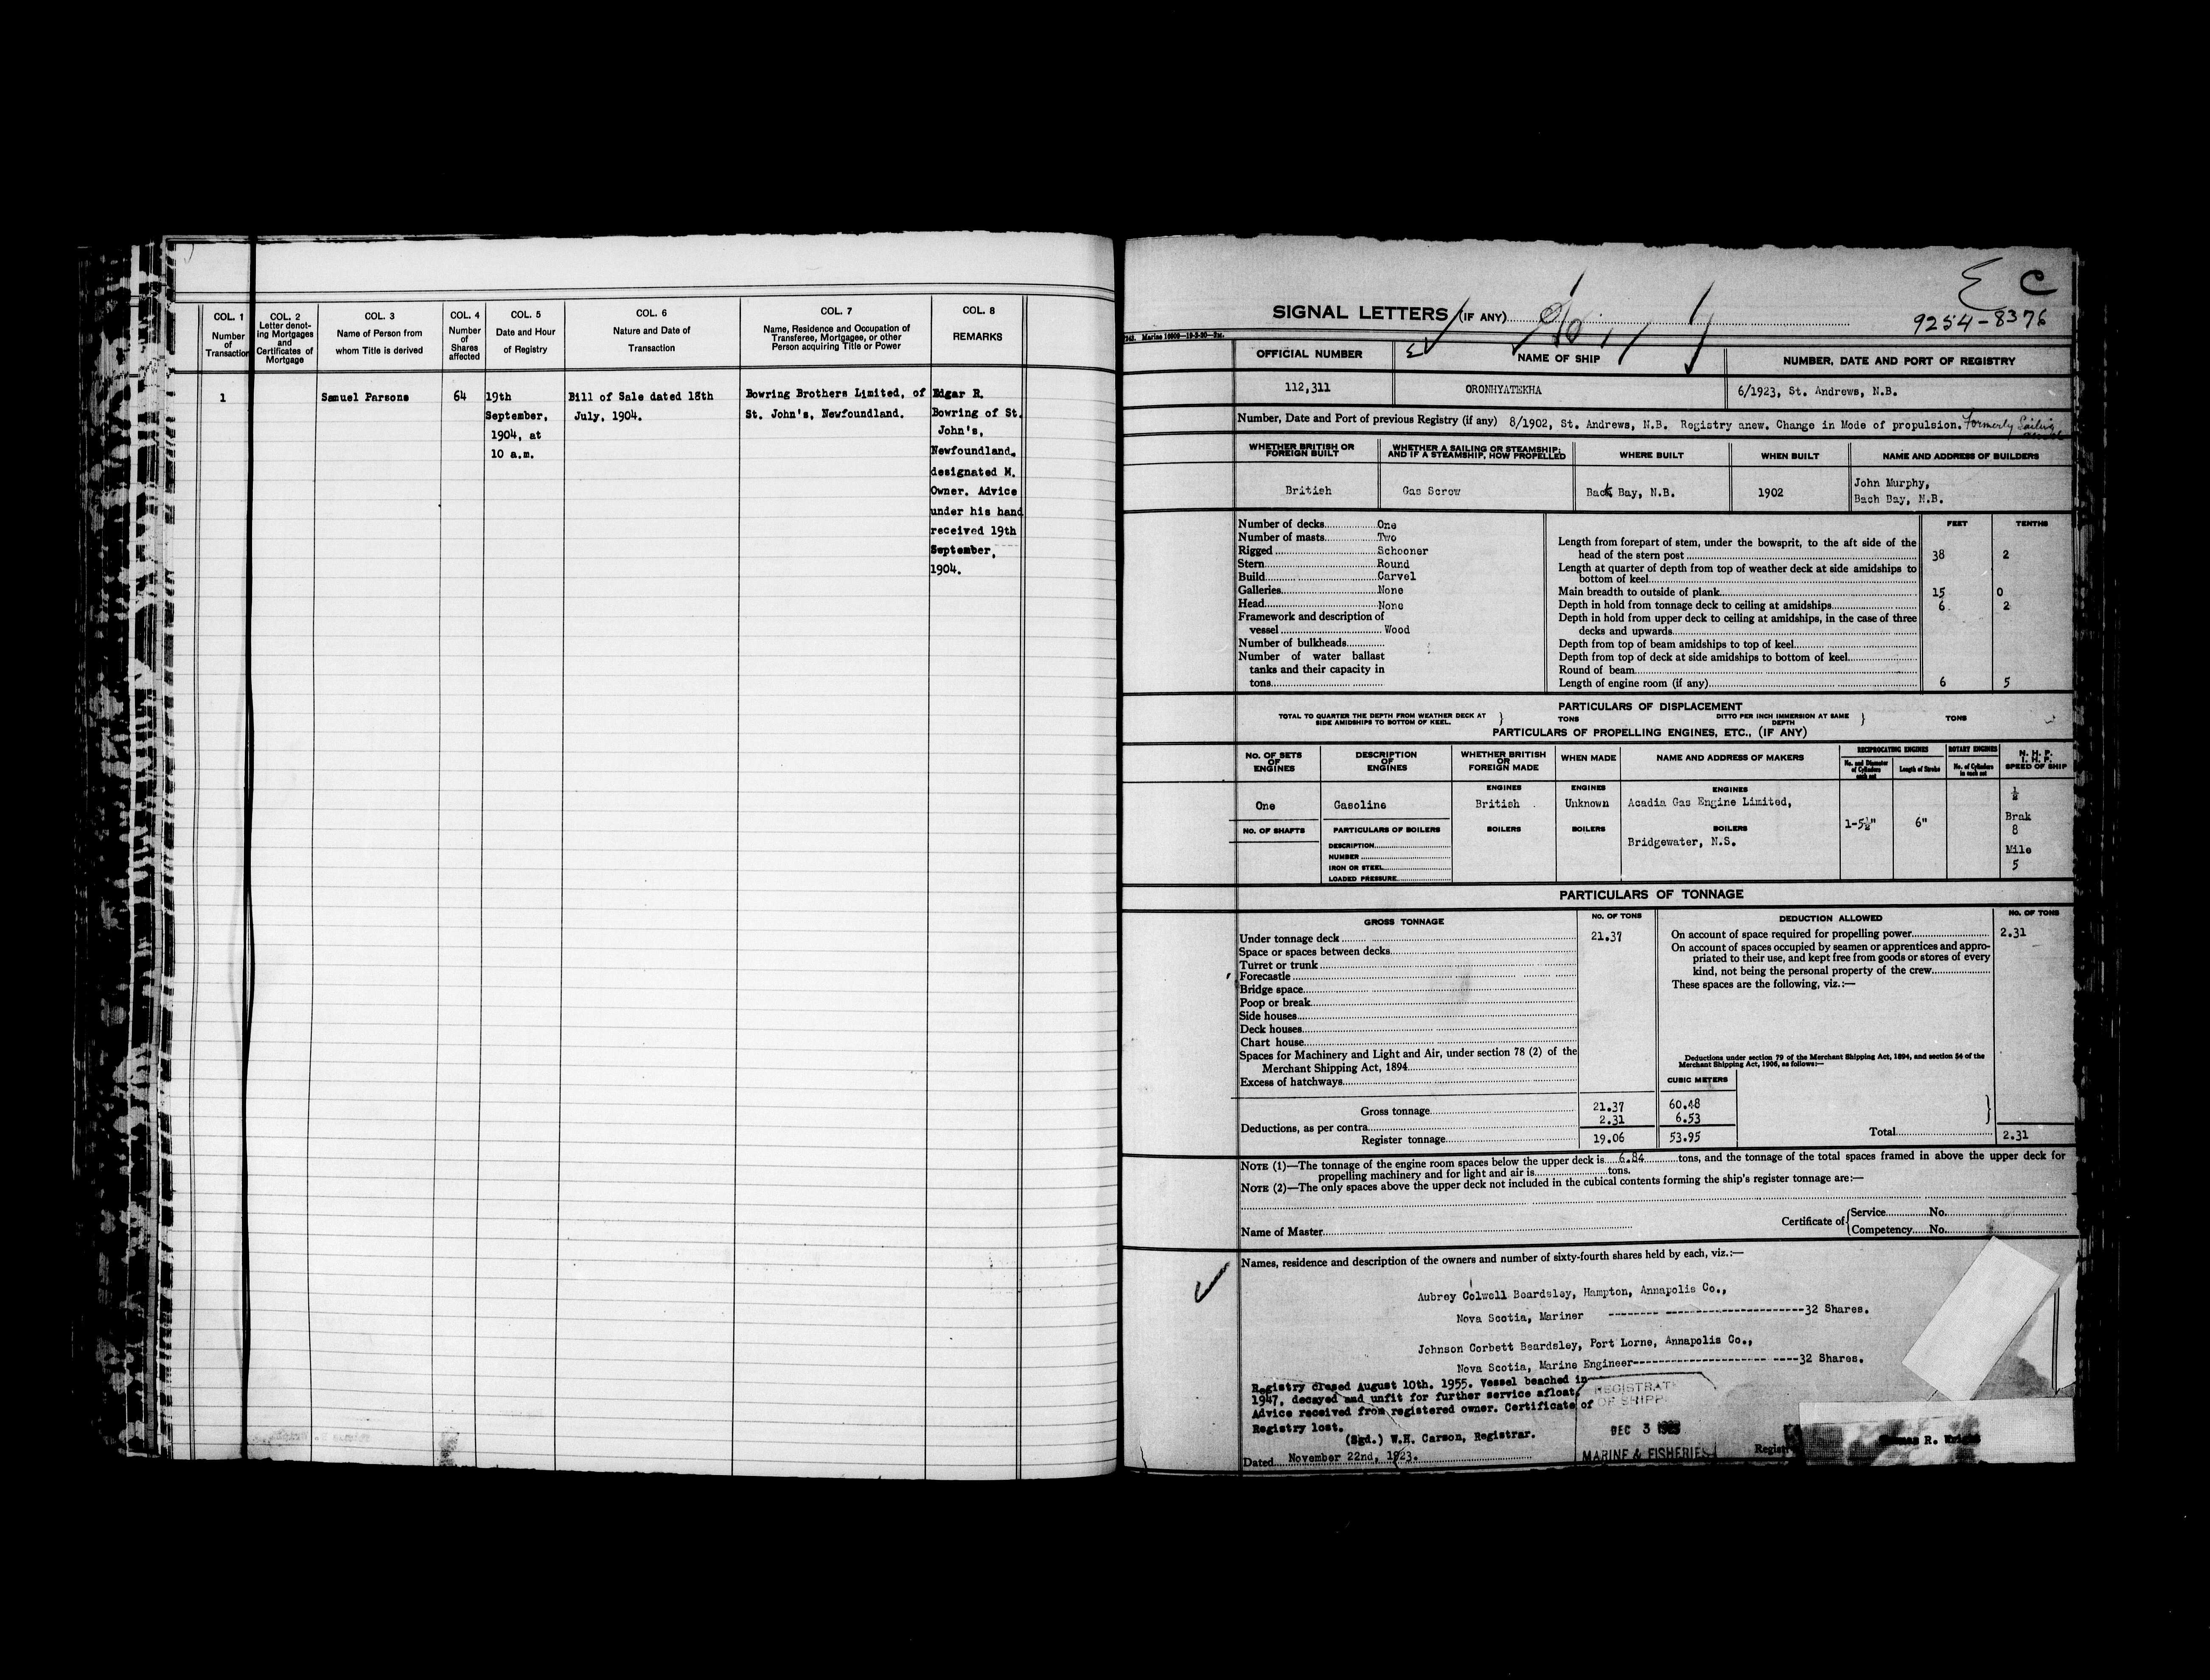 COL. 1
Number
of
Transaction
COL. 2
Letter denot-
ing Mortgages
and
Certificates of
Mortgage
COL. 3
Name of Person from
whom Title is derived
COL. 4
Number
of
Shares
affected
COL. 5
Date and Hour
of Registry
COL. 6
Nature and Date of
Transaction
COL. 7
Name, Residence and Occupation of
Transferee, Mortgagee, or other
Person acquiring Title or Power
COL. 8
REMARKS
1
Samuel Parsons
64
19th
September,
1904, at
10 a.m.
Bill of Sale dated 18th
July, 1904.
Bowring Brothers Limited, of
St. John's, Newfoundland.
Edgar R.
Bowring of St.
John's,
Newfoundland,
designated M.
Owner. Advice
under his hand
received 19th
September,
1904.
E C
9254-8376
SIGNAL LETTERS (IF ANY)
OFFICIAL NUMBER
NAME OF SHIP
NUMBER, DATE AND PORT OF REGISTRY
112,311
ORONHYATEKHA
6/1923, St. Andrews, N.B.
Number, Date and Port of previous Registry (if any) 8/1902, St. Andrews, N.B. Registry anew. Change in Mode of propulsion. Formerly Sailing
WHETHER BRITISH OR
FOREIGN BUILT
WHETHER A SAILING OR STEAMSHIP;
AND IF A STEAMSHIP, HOW PROPELLED
WHERE BUILT
WHEN BUILT
NAME AND ADDRESS OF BUILDERS
British
Gas Screw
Back Bay, N.B.
1902
John Murphy,
Bach Bay, N.B.
Number of decks One
Number of masts Two
Rigged Schooner
Stern Round
Build Carvel
Galleries None
Head None
Framework and description of
vessel Wood
Number of bulkheads
Number of water ballast
tanks and their capacity in
tons
FEET TENTHS
Length from forepart of stem, under the bowsprit, to the aft side of the
head of the stern post 38 2
Length at quarter of depth from top of weather deck at side amidships to
bottom of keel
Main breadth to outside of plank 15 0
Depth in hold from tonnage deck to ceiling at amidships 6 2
Depth in hold from upper deck to ceiling at amidships, in the case of three
decks and upwards
Depth from top of beam amidships to top of keel
Depth from top of deck at side amidships to bottom of keel
Round of beam
Length of engine room (if any) 6 5
PARTICULARS OF DISPLACEMENT
TOTAL TO QUARTER THE DEPTH FROM WEATHER DECK AT
SIDE AMIDSHIPS TO BOTTOM OF KEEL. } TONS
DITTO PER INCH IMMERSION AT SAME
DEPTH } TONS
PARTICULARS OF PROPELLING ENGINES, ETC., (IF ANY)
NO. OF SETS
OF
ENGINES
DESCRIPTION
OF
ENGINES
WHETHER BRITISH
OR
FOREIGN MADE
WHEN MADE
NAME AND ADDRESS OF MAKERS
RECIPROCATING ENGINES
No. and Diameter
of Cylinders
each set
Length of Stroke
ROTARY ENGINES
No. of Cylinders
in each set
N. H. P.
I. H. P.
SPEED OF SHIP
ENGINES
ENGINES
ENGINES
One
Gasoline
British
Unknown
Acadia Gas Engine Limited,
½
Brak
8
Mile
5
NO. OF SHAFTS
PARTICULARS OF BOILERS
BOILERS
BOILERS
BOILERS
1-5½"
6"
Bridgewater, N.S.
DESCRIPTION
NUMBER
IRON OR STEEL
LOADED PRESSURE
PARTICULARS OF TONNAGE
GROSS TONNAGE
NO. OF TONS
DEDUCTION ALLOWED
NO. OF TONS
Under tonnage deck 21.37
Space or spaces between decks
Turret or trunk
Forecastle
Bridge space
Poop or break
Side houses
Deck houses
Chart house
Spaces for Machinery and Light and Air, under section 78 (2) of the
Merchant Shipping Act, 1894
Excess of hatchways
On account of space required for propelling power 2.31
On account of spaces occupied by seamen or apprentices and appro-
priated to their use, and kept free from goods or stores of every
kind, not being the personal property of the crew
These spaces are the following, viz.:—
Deductions under section 79 of the Merchant Shipping Act, 1894, and section 54 of the
Merchant Shipping Act, 1906, as follows:—
CUBIC METERS
Gross tonnage 21.37 60.48
Deductions, as per contra 2.31 6.53
Register tonnage 19.06 53.95
Total 2.31
NOTE (1)—The tonnage of the engine room spaces below the upper deck is 6.84 tons, and the tonnage of the total spaces framed in above the upper deck for
propelling machinery and for light and air is tons.
NOTE (2)—The only spaces above the upper deck not included in the cubical contents forming the ship's register tonnage are:—
Name of Master
Certificate of { Service No.
Competency No.
Names, residence and description of the owners and number of sixty-fourth shares held by each, viz.:—
Aubrey Colwell Beardsley, Hampton, Annapolis Co.,
Nova Scotia, Mariner ----32 Shares.
Johnson Corbett Beardsley, Port Lorne, Annapolis Co.,
Nova Scotia, Marine Engineer----32 Shares.
Registry closed August 10th. 1955. Vessel beached in
1947, decayed and unfit for further service afloat.
Advice received from registered owner. Certificate of
Registry lost.
(Sgd.) W.H. Carson, Registrar.
Dated November 22nd, 1923.
REGISTRAT
OF SHIPP
DEC 3 1923
MARINE & FISHERIES
Regist
Thomas R. Wright